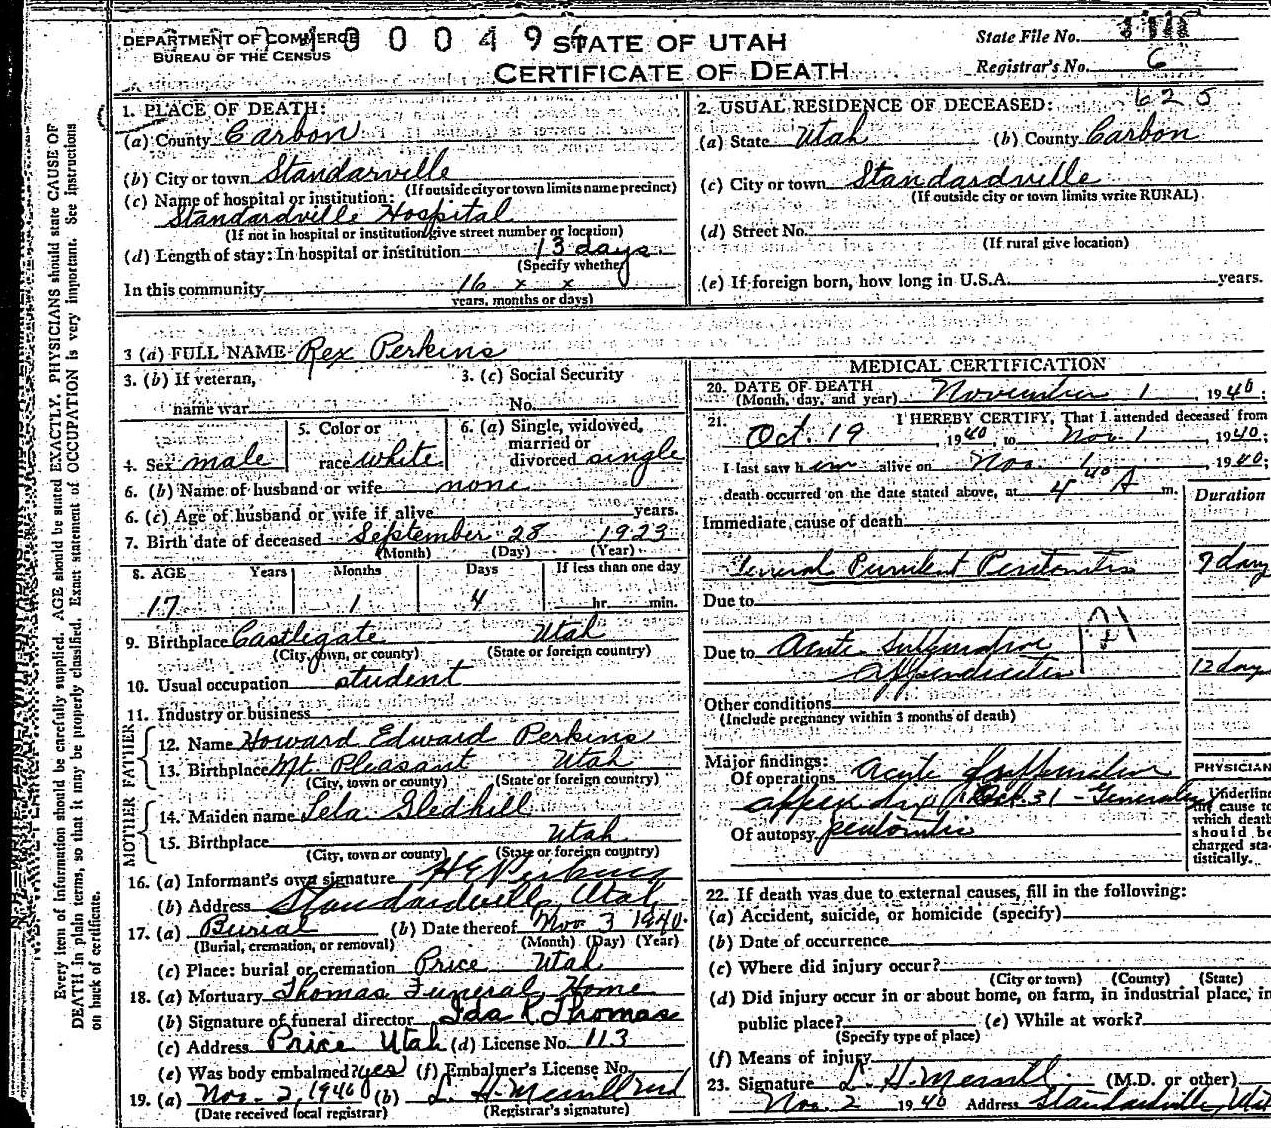 DEPARTMENT OF COMMERCE
BUREAU OF THE CENSUS
0 0 4 9
STATE OF UTAH
CERTIFICATE OF DEATH
State File No.
Registrar's No. 6
625
1. PLACE OF DEATH:
(a) County Carbon
(b) City or town Standarville
(If outside city or town limits name precinct)
(c) Name of hospital or institution:
Standardville Hospital
(If not in hospital or institution give street number or location)
(d) Length of stay: In hospital or institution 13 days
(Specify whether
In this community 16 x x
years, months or days)
2. USUAL RESIDENCE OF DECEASED:
(a) State Utah (b) County Carbon
(c) City or town Standardville
(If outside city or town limits write RURAL)
(d) Street No.
(If rural give location)
(e) If foreign born, how long in U.S.A. years.
3 (a) FULL NAME Rex Perkins
3. (b) If veteran,
name war
3. (c) Social Security
No.
4. Sex male
5. Color or
race white
6. (a) Single, widowed,
married or
divorced single
6. (b) Name of husband or wife none
6. (c) Age of husband or wife if alive years.
7. Birth date of deceased September 28 1923
(Month) (Day) (Year)
8. AGE Years Months Days If less than one day
17 1 4 hr. min.
9. Birthplace Castlegate Utah
(City, town, or county) (State or foreign country)
10. Usual occupation student
11. Industry or business
FATHER
12. Name Howard Edward Perkins
13. Birthplace Mt. Pleasant Utah
(City, town or county) (State or foreign country)
MOTHER
14. Maiden name Lela Gledhill
15. Birthplace Utah
(City, town or county) (State or foreign country)
16. (a) Informant's own signature H E Perkins
(b) Address Standardville, Utah
17. (a) Burial (b) Date thereof Nov 3 1940
(Burial, cremation, or removal) (Month) (Day) (Year)
(c) Place: burial or cremation Price Utah
18. (a) Mortuary Thomas Funeral Home
(b) Signature of funeral director Ida K Thomas
(c) Address Price Utah (d) License No. 113
(e) Was body embalmed? yes (f) Embalmer's License No.
19. (a) Nov. 2, 1940 (b) L. H. Merrill md
(Date received local registrar) (Registrar's signature)
MEDICAL CERTIFICATION
20. DATE OF DEATH
(Month, day, and year) November 1, 1940;
21. I HEREBY CERTIFY, That I attended deceased from
Oct. 19, 1940, to Nov. 1, 1940;
I last saw him alive on Nov. 1, 1940;
death occurred on the date stated above, at 4 40 A m.
Duration
Immediate cause of death
General Purulent Peritonitis 7 days
Due to
Due to Acute Suppurative
appendicitis 12 days
Other conditions
(Include pregnancy within 3 months of death)
Major findings:
Of operations Acute Suppurative
Oct. 31 - General
Of autopsy peritonitis
PHYSICIAN
Underline
the cause to
which death
should be
charged sta-
tistically.
22. If death was due to external causes, fill in the following:
(a) Accident, suicide, or homicide (specify)
(b) Date of occurrence
(c) Where did injury occur?
(City or town) (County) (State)
(d) Did injury occur in or about home, on farm, in industrial place, in
public place? (e) While at work?
(Specify type of place)
(f) Means of injury
23. Signature L. H. Merrill. (M.D. or other)
Nov. 2 1940 Address Standardville, Utah
Every item of information should be carefully supplied. AGE should be stated EXACTLY. PHYSICIANS should state CAUSE OF
DEATH in plain terms, so that it may be properly classified. Exact statement of OCCUPATION is very important. See Instructions
on back of certificate.